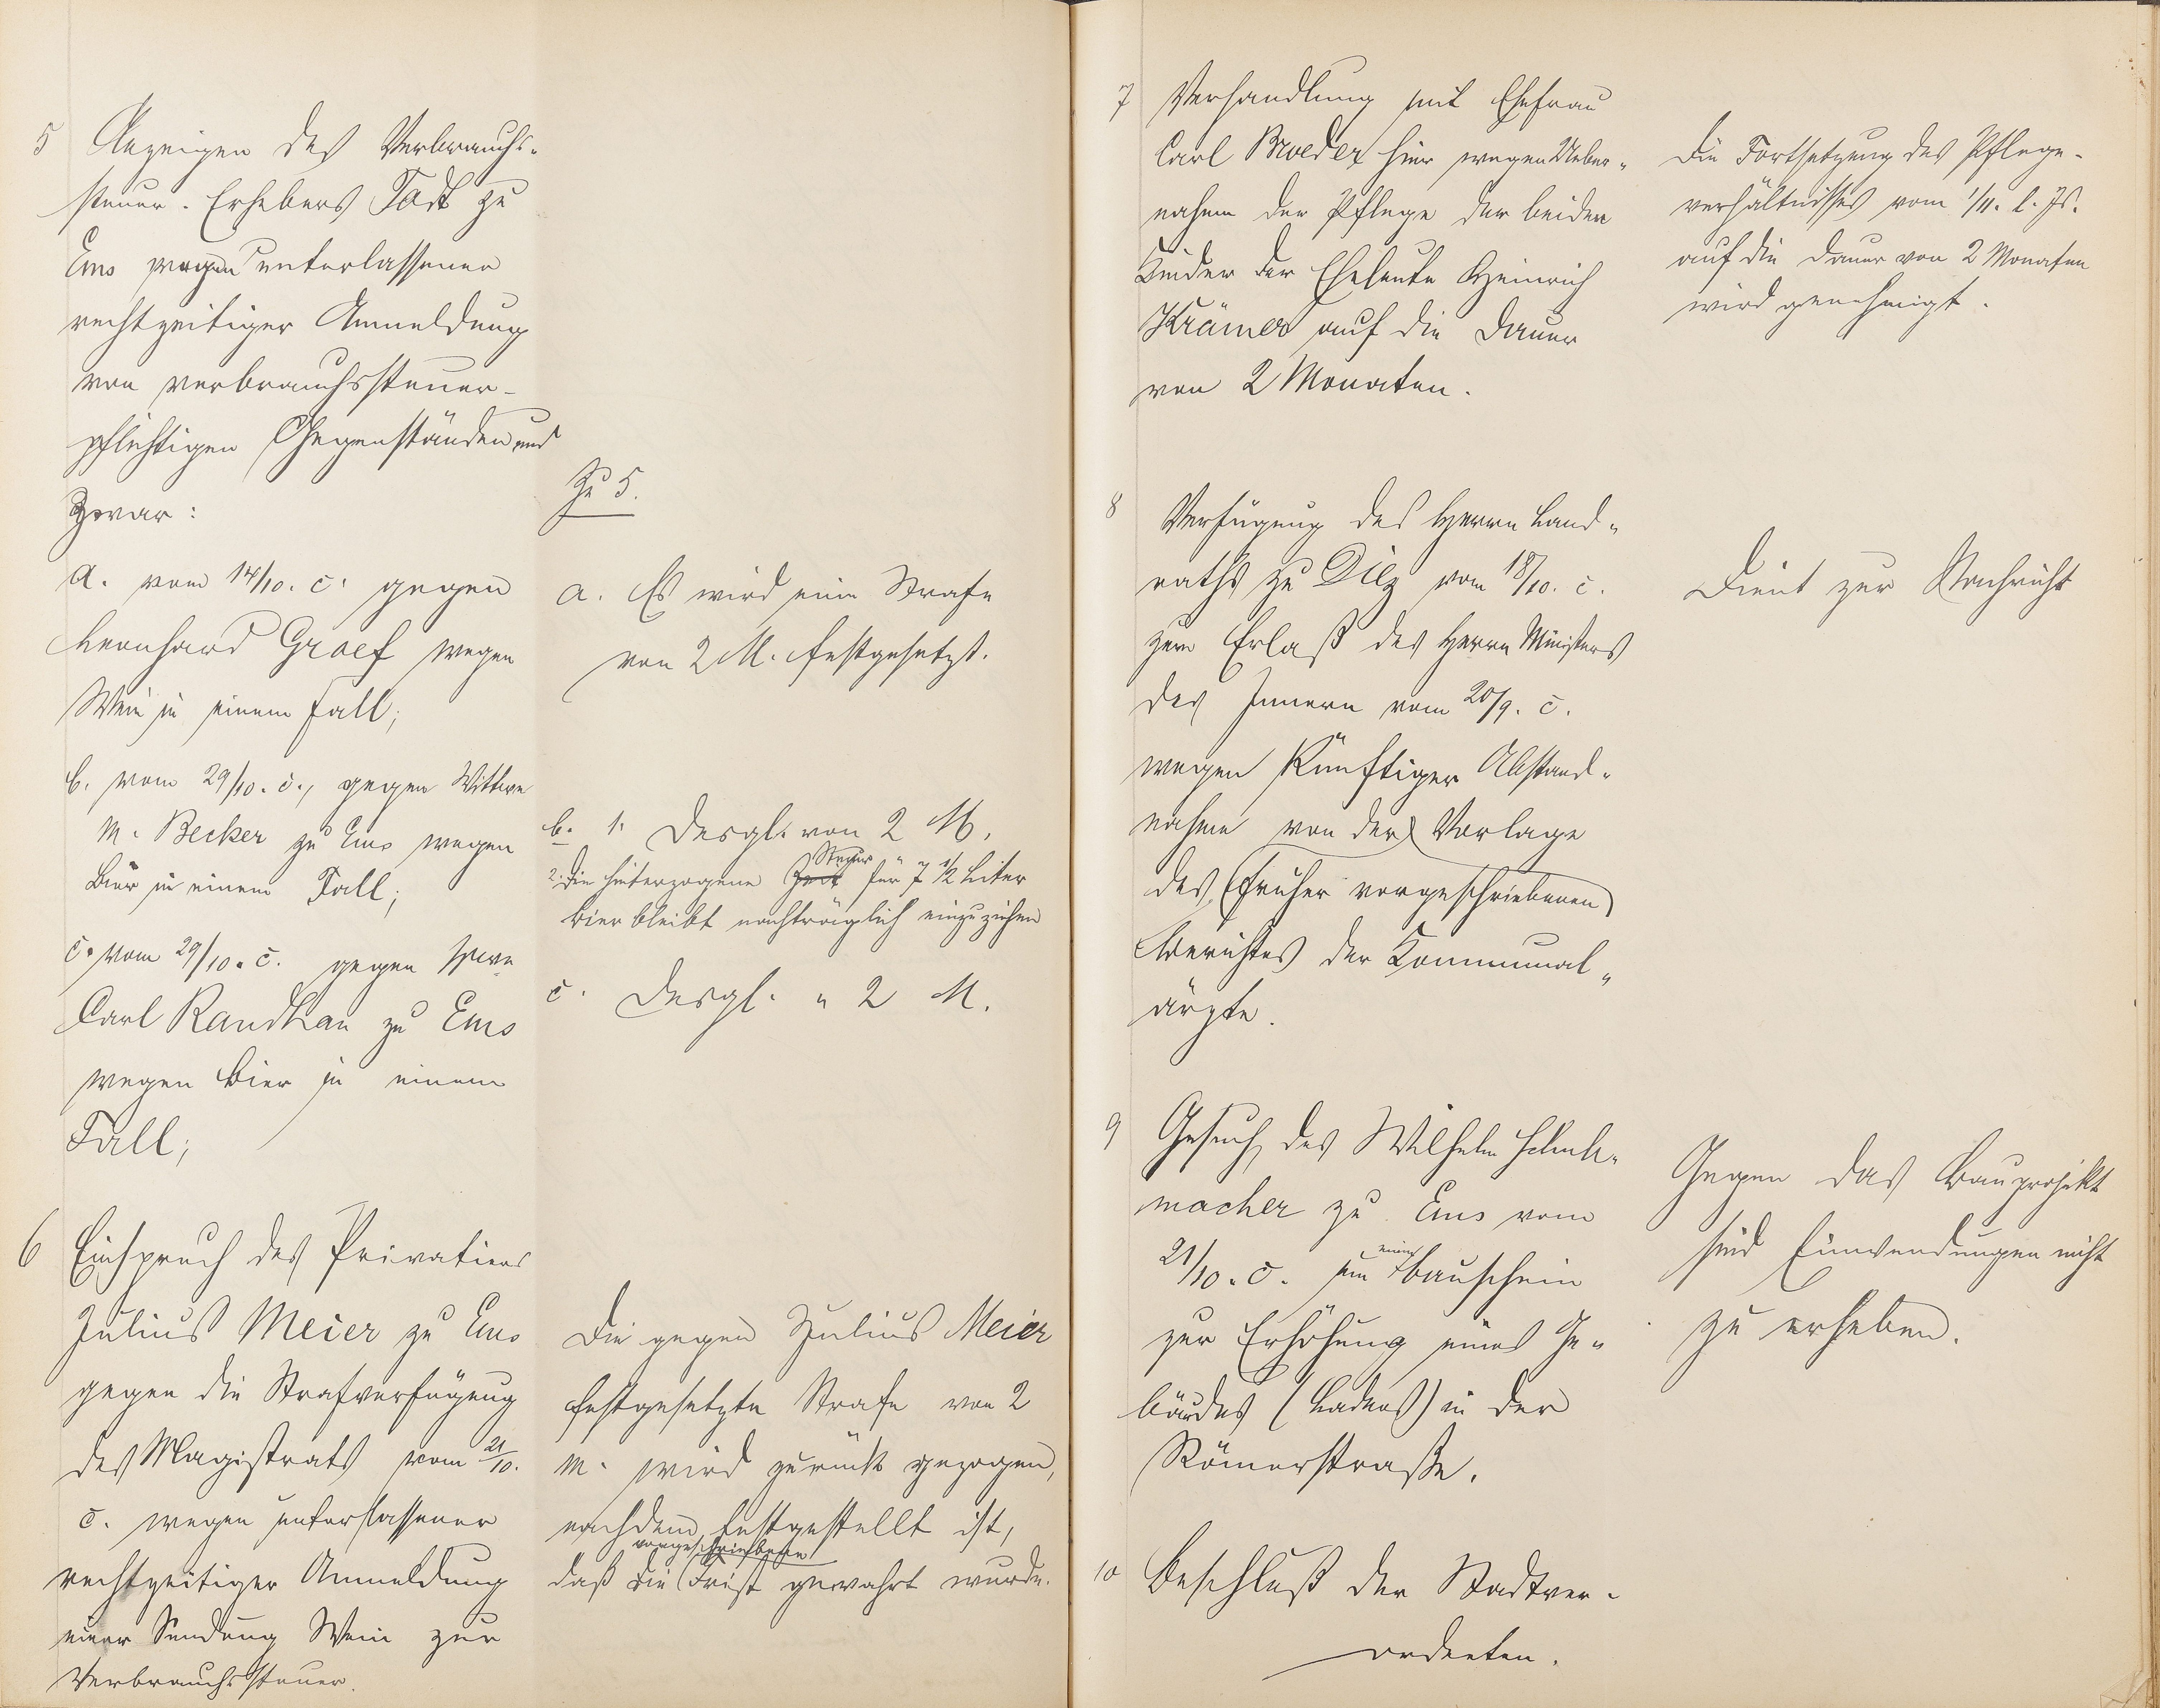 5 Anzeigen des Verbrauchs-
steuer-Erhebers Todt zu
Ems wegen unterlassener
rechtzeitiger Anmeldung
von verbrauchssteuer-
pflichtigen Gegenständen und
zwar:
a. vom 14/10. c. gegen
Leonhard Graef wegen
Wein in einem Fall;
b. vom 29/10. c., gegen Wittwe
M. Becker zu Ems wegen
Bier in einem Fall;
c. vom 29/10. c. gegen Herrn
Carl Randhan zu Ems
wegen Bier in einem
Fall;
6 Einspruch des Privatiers
Julius Meier zu Ems
gegen die Strafverfügung
des Magistrats vom 21/10.
c. wegen unterlassener
rechtzeitiger Anmeldung
einer Sendung Wein zur
Verbrauchssteuer.
Zu 5.
a. Es wird eine Strafe
von 2 M. festgesetzt.
b. 1. Desgl. von 2 M.
2. Die hinterzogene Steuer für 7 1/2 Liter
Bier bleibt nachträglich einzuziehen
c. Desgl. " 2 M.
Die gegen Julius Meier
festgesetzte Strafe von 2
M. wird zurück gezogen,
nachdem festgestellt ist,
vorgeschriebene
daß die Frist gewahrt wurde.
7 Verhandlung mit Ehefrau
Carl Broeder hier wegen Ueber-
nahme der Pflege der beiden
Kinder der Eheleute Heinrich
Krämer auf die Dauer
von 2 Monaten.
8 Verfügung des Herrn Land-
raths zu Diez vom 18/10. c.
zum Erlaß des Herrn Ministers
des Innern vom 20/9. c.
wegen künftiger Abstand-
nahme von der Vorlage
des (früher vorgeschriebenen)
Berichtes der Kommunal-
ärzte.
9 Gesuch des Wilhelm Schuh-
macher zu Ems vom
21/10. c. um einen Bauschein
zur Erhöhung eines Ge-
bäudes (Ladens) in der
Römerstraße.
10 Beschluß der Stadtver-
ordneten.
Die Fortsetzung des Pflege-
verhältnisses vom 1/11. l. Js.
auf die Dauer von 2 Monaten
wird genehmigt.
Dient zur Nachricht
Gegen das Bauprojekt
sind Einwendungen nicht
zu erheben.